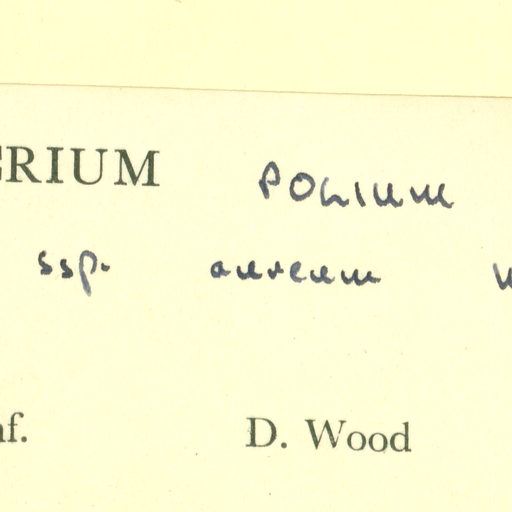 ERIUM POLIUM
ssp. aureum
nf. D. Wood